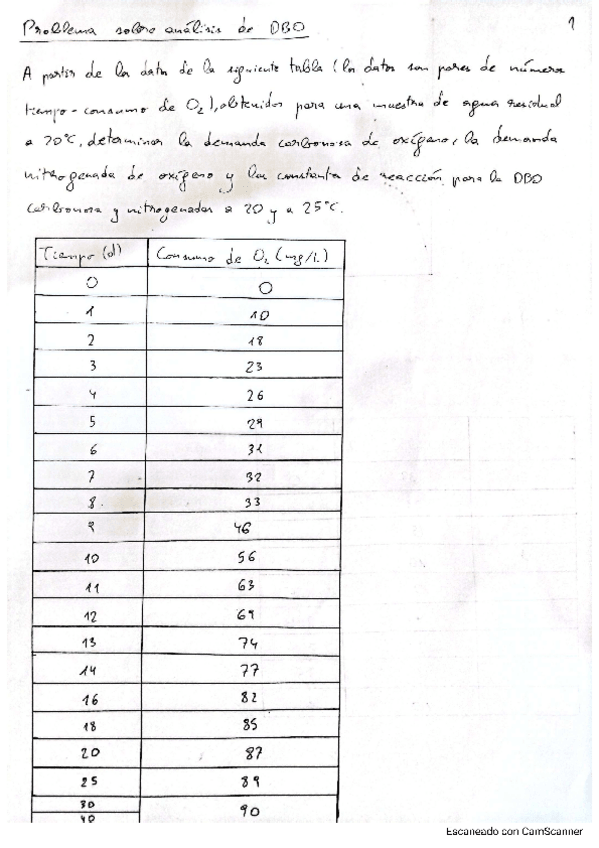 Problema sobre análisis de DBO
1
A partir de los datos de la siguiente tabla (los datos son pares de números
tiempo-consumo de O2), obtenidos para una muestra de agua residual
a 20°C, determinar la demanda carbonosa de oxígeno, la demanda
nitrogenada de oxígeno y las constantes de reacción para la DBO
carbonosa y nitrogenadas a 20 y a 25°C.
Tiempo (d) Consumo de O2 (mg/L)
0 0
1 10
2 18
3 23
4 26
5 29
6 31
7 32
8 33
9 46
10 56
11 63
12 69
13 74
14 77
16 82
18 85
20 87
25 89
30 90
40
Escaneado con CamScanner